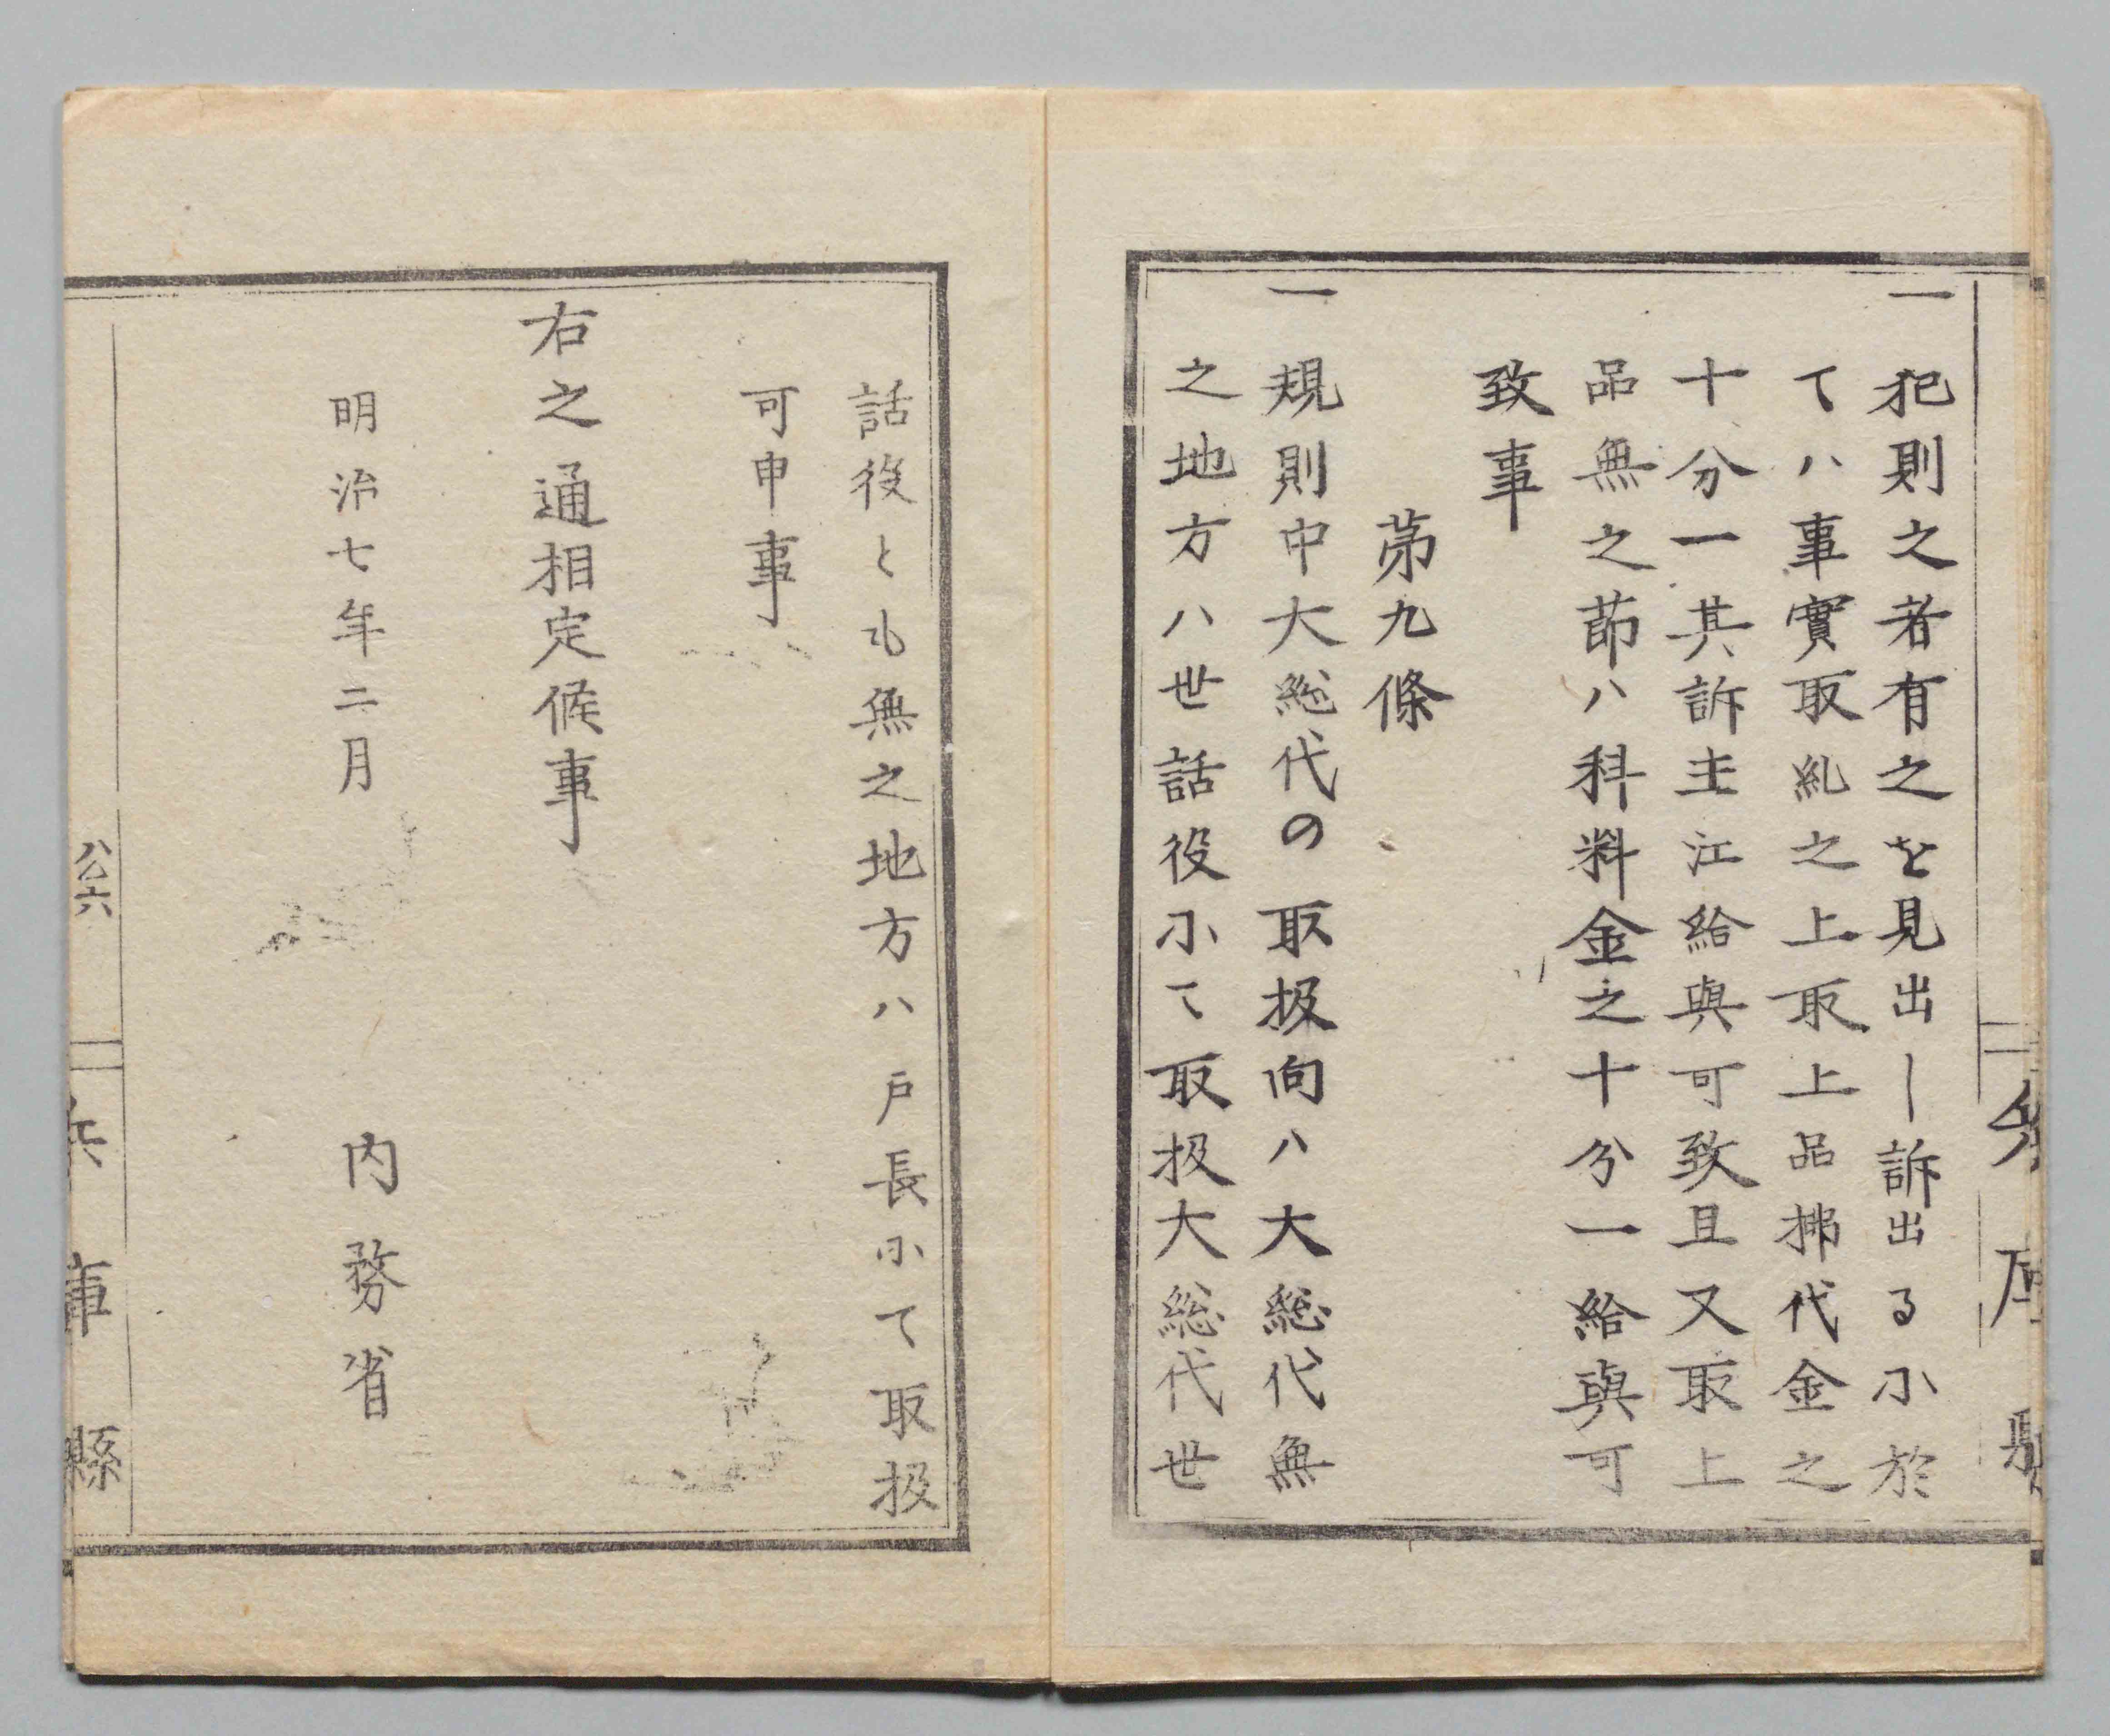 一 犯則之者有之を見出し訴出るに於
てハ事實取糺之上取上品拂代金之
十分一其訴主江給與可致且又取上
品無之節ハ科料金之十分一給與可
致事
第九條
一 規則中大総代の取扱向ハ大総代無
之地方ハ世話役にて取扱大総代世
話役とも無之地方ハ戸長にて取扱
可申事
右之通相定候事
明治七年二月
内務省
公六
兵庫縣